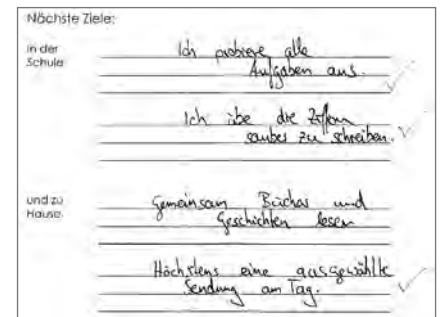 Nächste Ziele:
in der
Schule
Ich probiere alle
Aufgaben aus.
Ich übe die Ziffern
sauber zu schreiben.
und zu
Hause
Gemeinsam Bücher und
Geschichten lesen
Höchstens eine ausgewählte
Sendung am Tag.